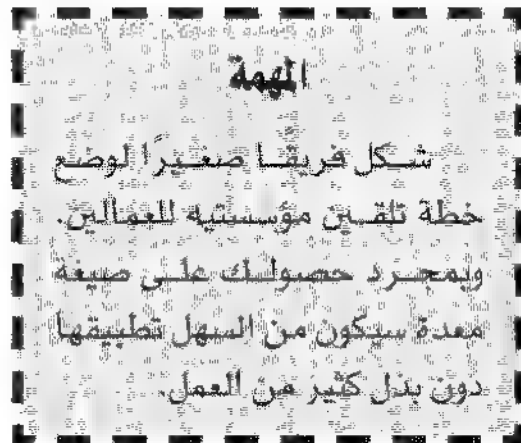 المهمة
شكل فريقا صغيرًا لوضع
خطة تلقين مؤسستيه للعمالين.
وبمجرد حصولك على صيغة
معدة سيكون من السهل تطبيقها
دون بذل كثير من العمل.